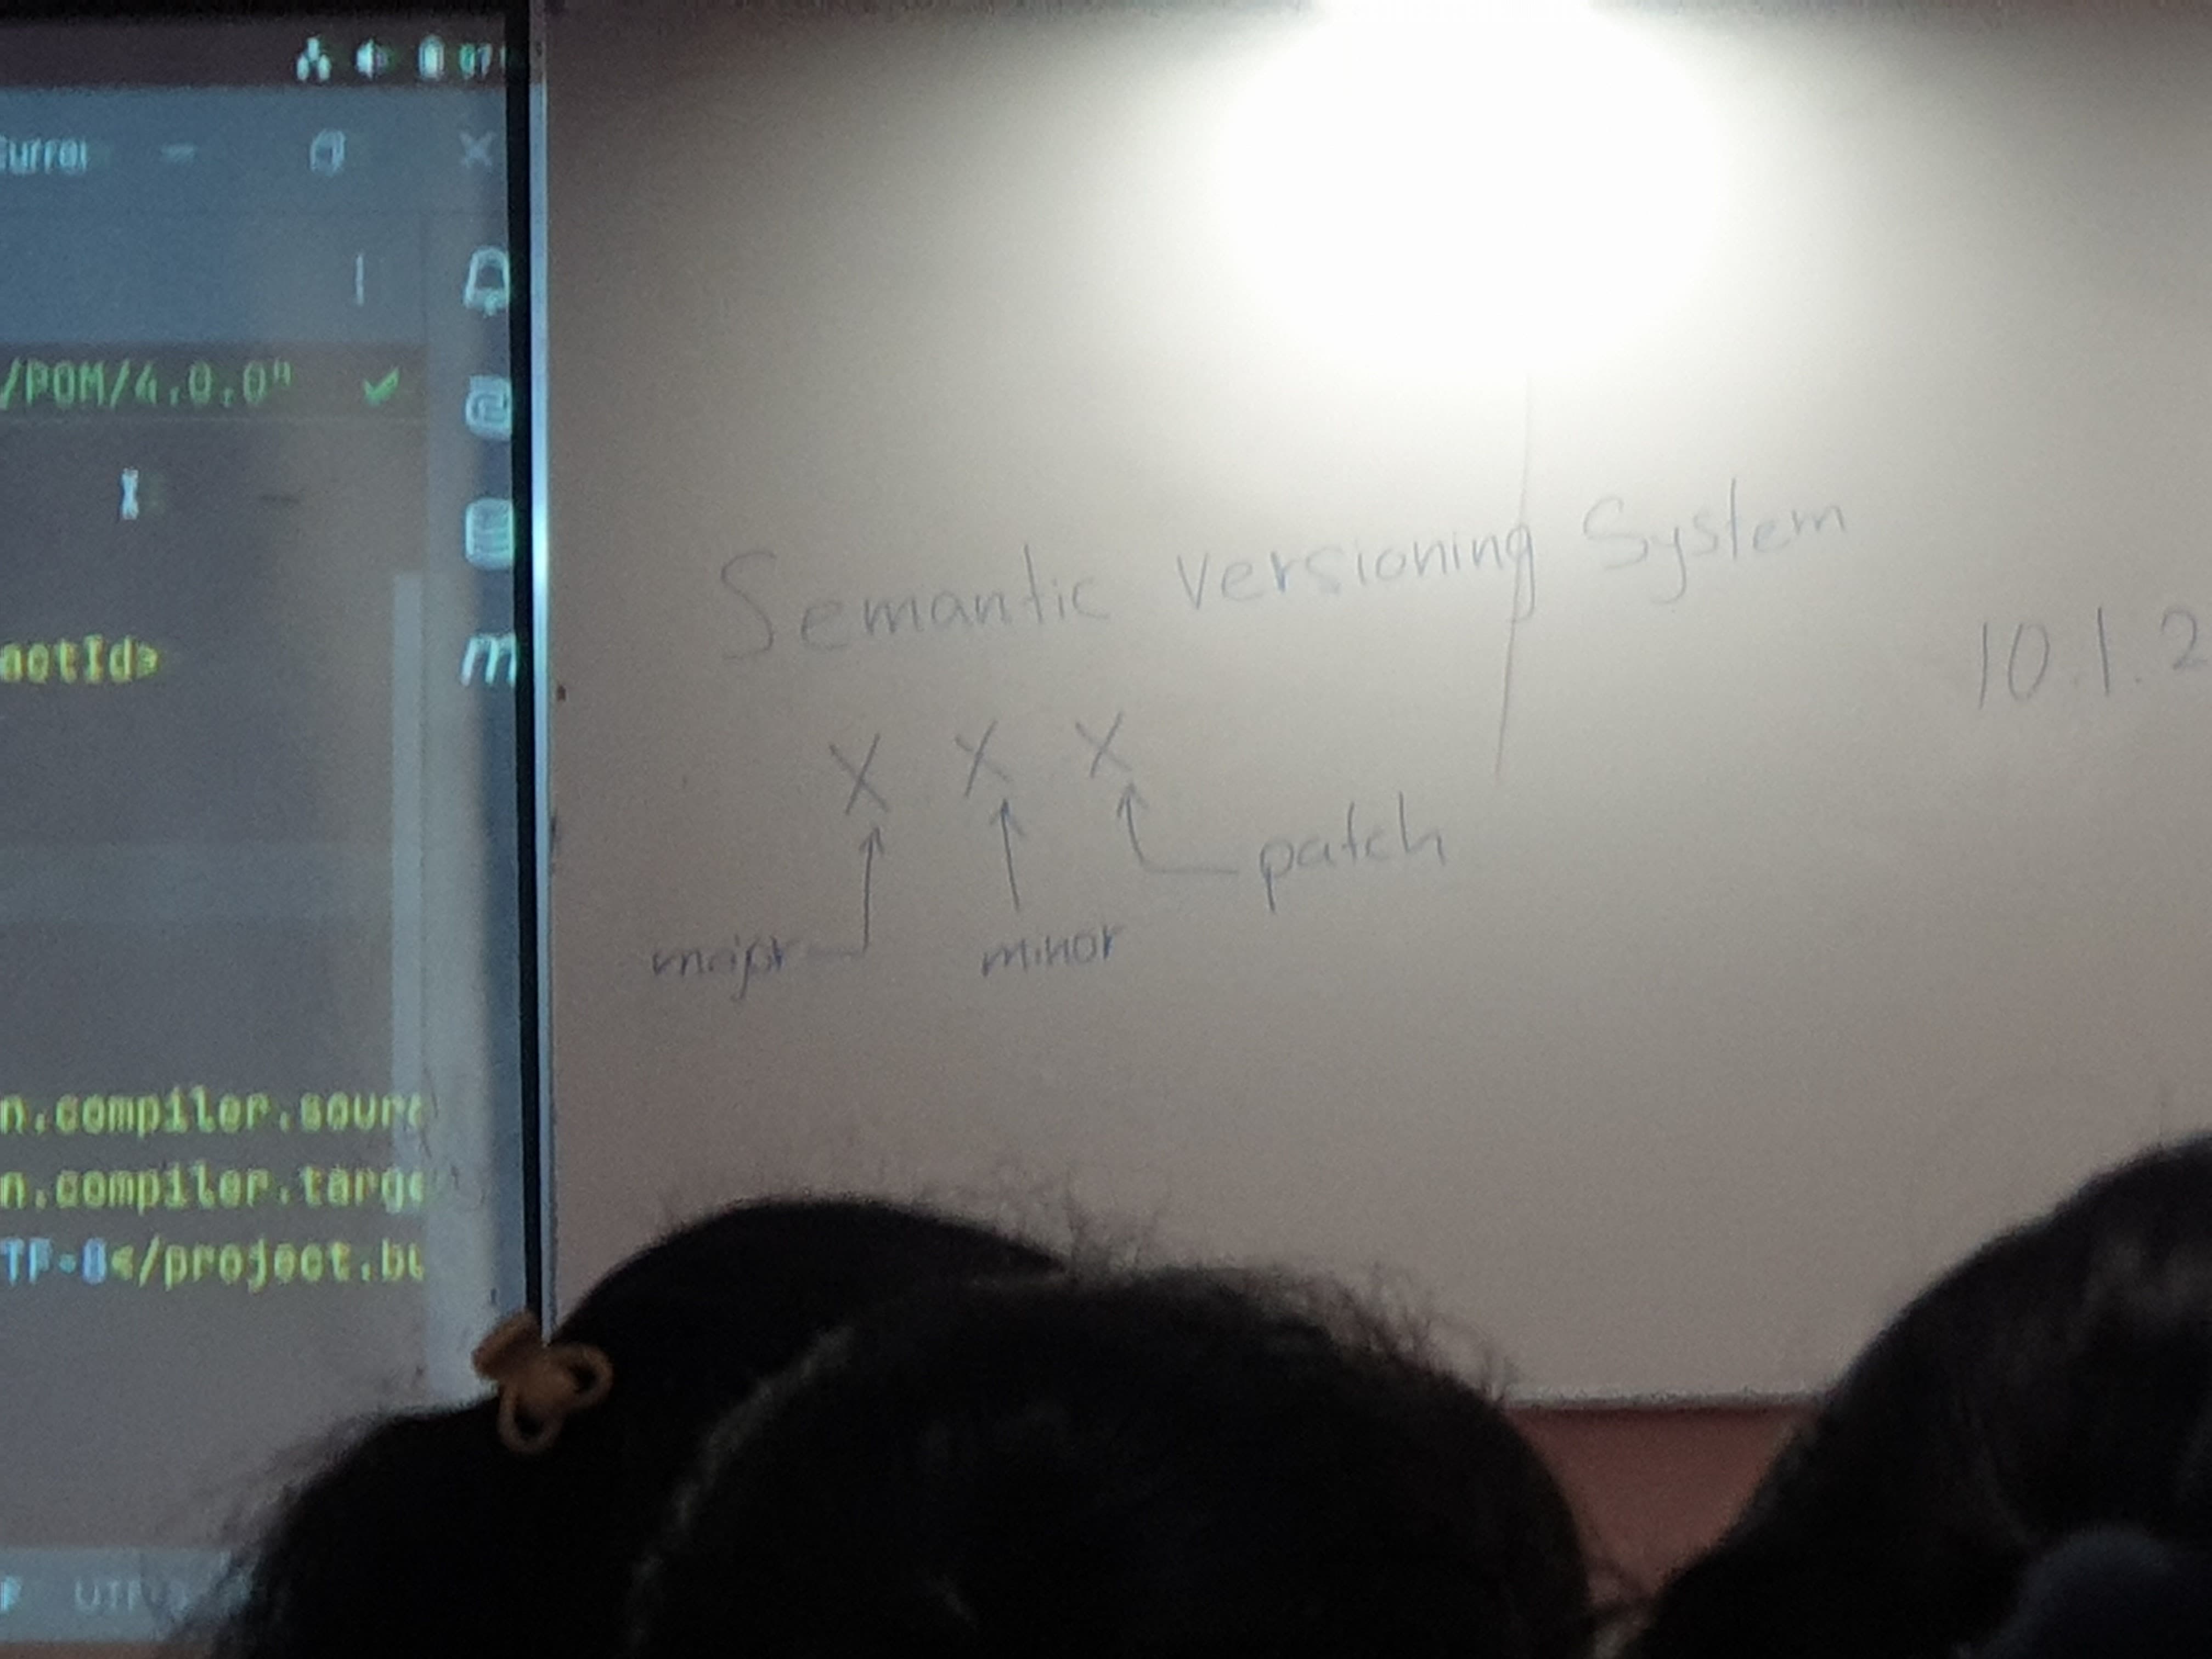 07
Curre
/POM/4.0.0"
actId>
m
n.compiler.sourc
n.compiler.targe
TF-8</project.bu
UTF-8
Semantic Versioning System
10.1.2
X X X
patch
major minor